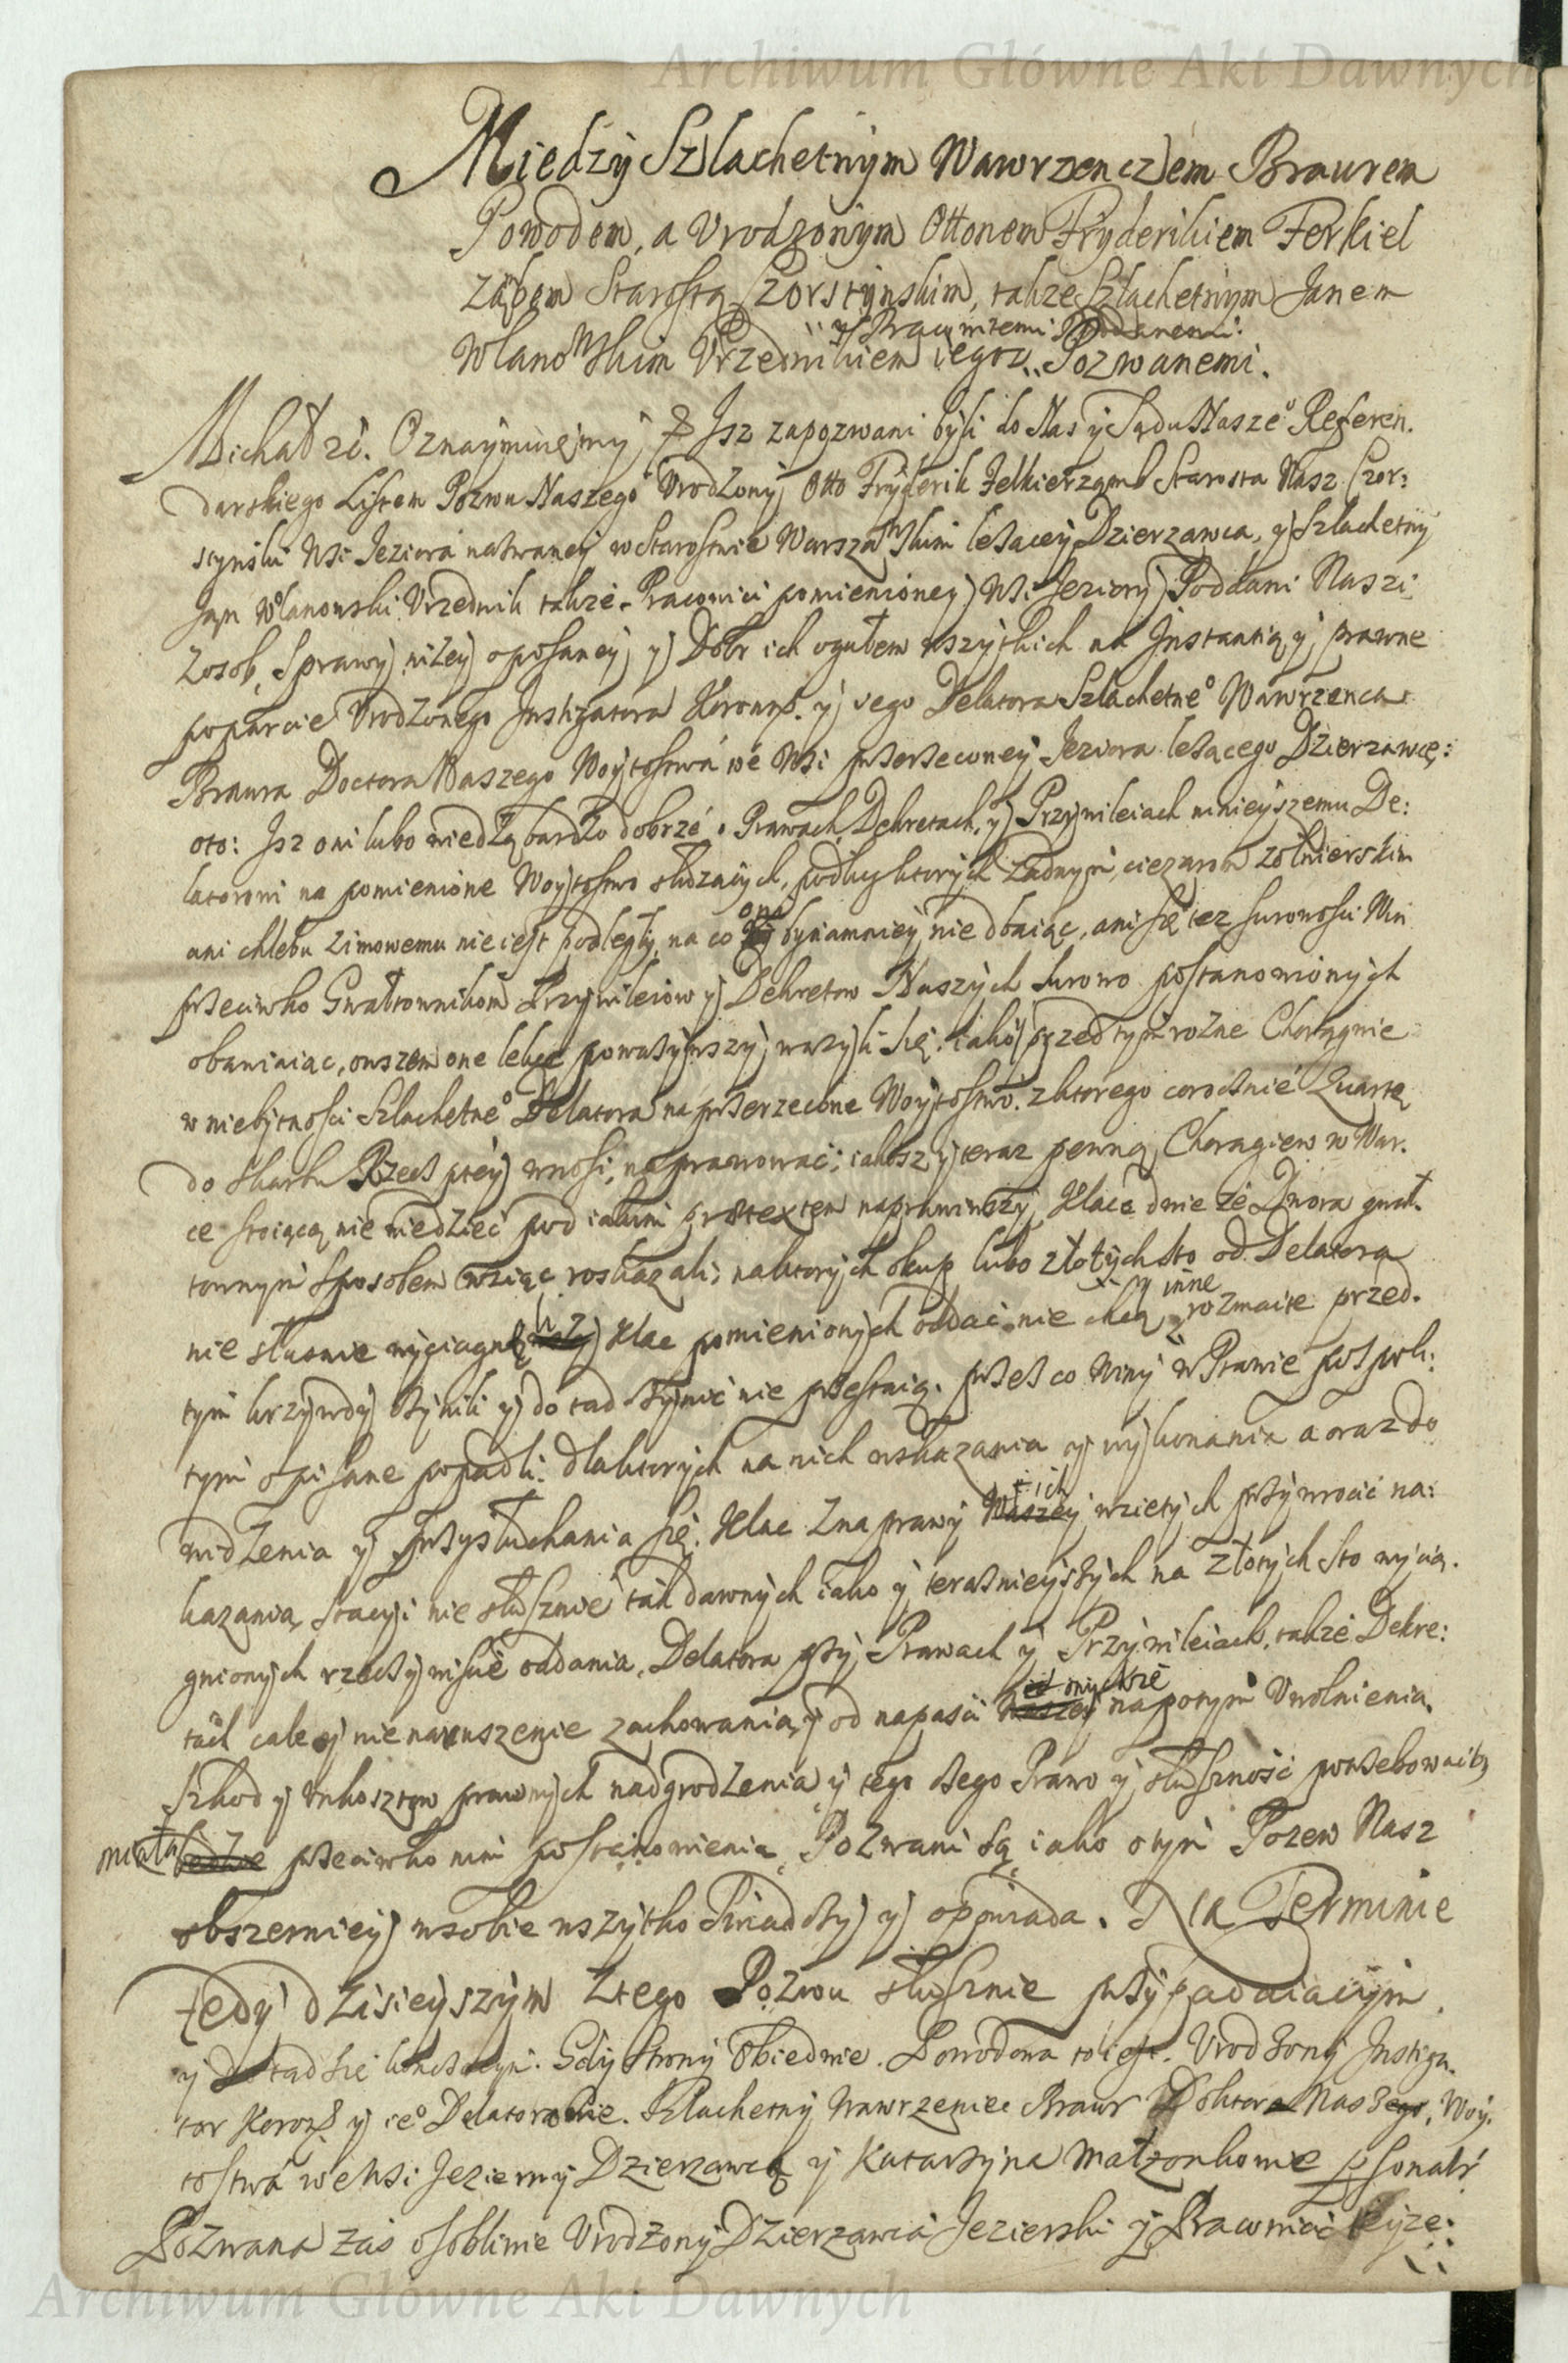 Archiwum Główne Akt Dawnych
Miedzy Szlachetnym Wawrzenczem Braurem
Powodem, a Vrodzonym Ottonem Fryderikiem Felkiel
Zabem Starostą Czorstynskim, takze Szlachetnym Janem
y Pracowitemi Poddanemi
Wlanowskim Vrzednikiem iego Pozwanemi.
Michał zc. Oznaymuiemy Isz zapozwani byli do Nas y Sądu Naszeº Referen.
darskiego Listem Pozwu Naszego Vrodzony Otto Fryderik Felkierzamb Starosta Nasz Czor:
stynski Wsi Jeziora nazwaney w Starostwie Warszawskim leżącey Dzierzawca, y Szlachetny
Jan Wlanowski Vrzednik takze Pracowici pomienioney Wsi Jeziory Poddani Naszi
Zosob, Sprawy niżey opisaney y Dobr ich ogułem wszytkich na Instantią y prawne
poparcie Vrodzonego Instigatora Koronnº. y iego Delatora Szlachetneº Wawrzenca
Braura Doctora Naszego Woytostwa we Wsi przerzeconey Jeziora leżącego Dzierzawcę:
oto: Isz oni lubo wiedzą bardzo dobrze o Prawach, Dekretach, y Przywileiach ninieyszemu De:
latorowi na pomienione Woytostwo służących, podług ktorych żadnym ciezarom zołnierskim
ani chlebu zimowemu nie iest podległy, na co oni bynamniey nie dbaiąc, ani się tez surowosci Win
przeciwko Gwałtownikom Przywileiow y Dekretow Naszych surowo postanowionych
obawiaiąc, owszem one lekce poważywszy, wazyli się. iako przed tym rożne Chorągwie
w niebytnosci Szlachetneº Delatora na przerzeczone Woytostwo. z ktorego corocznie Quartę
do skarbu Rzeczptey wnosi, naprawować; iakosz y teraz pewną Chorągiew w War.
ce stoiącą nie wiedzieć pod iakim praetextem naprawiwszy, Klacz dwie ze Dwora gwał.
townym sposobem wziąć roskazali; na ktorych okup lubo złotych sto od Delatora
nie słusznie wyciągnęli Klac pomienionych oddać nie chcą, y inne rozmaite przed.
tym krzywdy czynili y do tąd czynić nie przestaią. przez co Winy w Prawie pospoli:
tym opisane popadli. dla ktorych na nich wskazania y wykonania a oraz do
widzenia y przysłuchania się. Klac z naprawy ich wzietych przywrocić na:
kazania, Stacyi nie słusznie tak dawnych iako y terasnieyszych na złotych sto wycią.
gnionych rzeczywiscie oddania, Delatora przy Prawach y Przywileiach, takze Dekre:
tach cale y nienaruszenie zachowania, y od napasci na potym Vwolnienia,
Szkod y vnkosztow prawnych nadgrodzenia y tego czego Prawo y słuszność potrzebowac by
miała przeciwko nim postanowienia, Pozwani są iako o tym Pozew Nasz
obszerniey w sobie wszytko swiadczy y opowiada. Na Terminie
tedy dzisieyszym z tego Pozwu słusznie przypadaiącym,
y do tąd się kończącym. Gdy Strony Obiedwie. Powodowa to iest. Vrodzony Instiga.
tor Koronº y ieº Delatorowie. Szlachetny Wawrzeniec Braur Doktor Nasz, Woy.
tostwa we Wsi Jezierny Dzierzawca y Katarzyna Małzonkowie psonalr
Pozwana zas osobliwie Vrodzony Dzierzawca Jezierski y Pracowici
Archiwum Główne Akt Dawnych